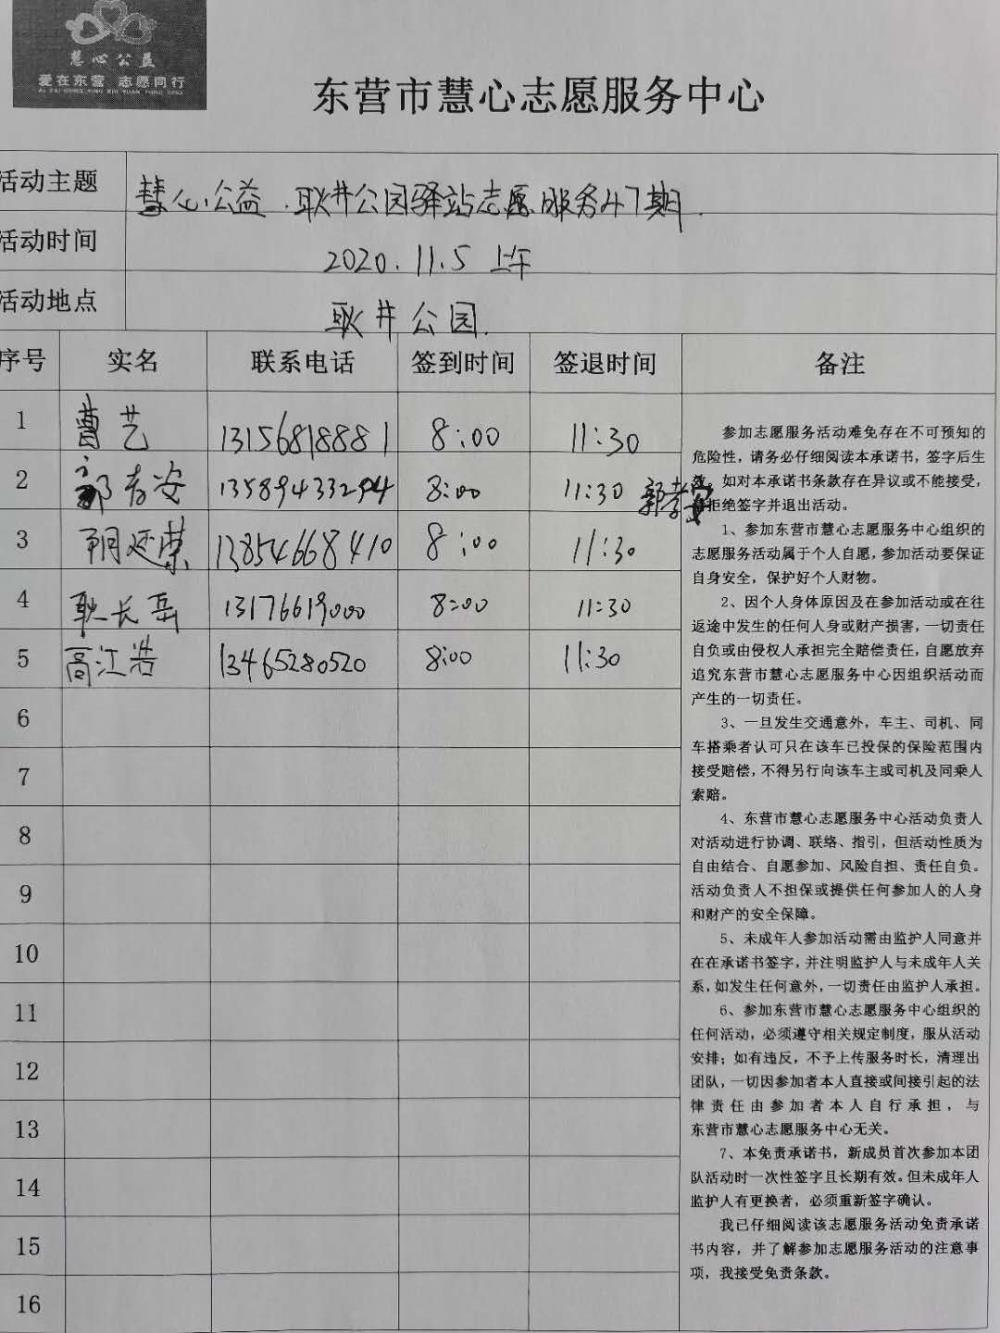 慧心公益
爱在东营 志愿同行
东营市慧心志愿服务中心
活动主题 慧心公益.耿井公园驿站志愿服务47期.
活动时间 2020.11.5 上午
活动地点 耿井公园.
序号 实名 联系电话 签到时间 签退时间 备注
1 曹艺 13156818881 8:00 11:30
2 郭孝安 13589433294 8:00 11:30 郭孝安
3 延荣 13854668410 8:00 11:30
4 耿长岳 13176619000 8:00 11:30
5 高江浩 13465280520 8:00 11:30
6
7
8
9
10
11
12
13
14
15
16
参加志愿服务活动难免存在不可预知的
危险性，请务必仔细阅读本承诺书，签字后生
效。如对本承诺书条款存在异议或不能接受，
拒绝签字并退出活动。
1、参加东营市慧心志愿服务中心组织的
志愿服务活动属于个人自愿，参加活动要保证
自身安全，保护好个人财物。
2、因个人身体原因及在参加活动或在往
返途中发生的任何人身或财产损害，一切责任
自负或由侵权人承担完全赔偿责任，自愿放弃
追究东营市慧心志愿服务中心因组织活动而
产生的一切责任。
3、一旦发生交通意外，车主、司机、同
车搭乘者认可只在该车已投保的保险范围内
接受赔偿，不得另行向该车主或司机及同乘人
索赔。
4、东营市慧心志愿服务中心活动负责人
对活动进行协调、联络、指引，但活动性质为
自由结合、自愿参加、风险自担、责任自负。
活动负责人不担保或提供任何参加人的人身
和财产的安全保障。
5、未成年人参加活动需由监护人同意并
在在承诺书签字，并注明监护人与未成年人关
系，如发生任何意外，一切责任由监护人承担。
6、参加东营市慧心志愿服务中心组织的
任何活动，必须遵守相关规定制度，服从活动
安排；如有违反，不予上传服务时长，清理出
团队，一切因参加者本人直接或间接引起的法
律责任由参加者本人自行承担，与
东营市慧心志愿服务中心无关。
7、本免责承诺书，新成员首次参加本团
队活动时一次性签字且长期有效。但未成年人
监护人有更换者，必须重新签字确认。
我已仔细阅读该志愿服务活动免责承诺
书内容，并了解参加志愿服务活动的注意事
项，我接受免责条款。